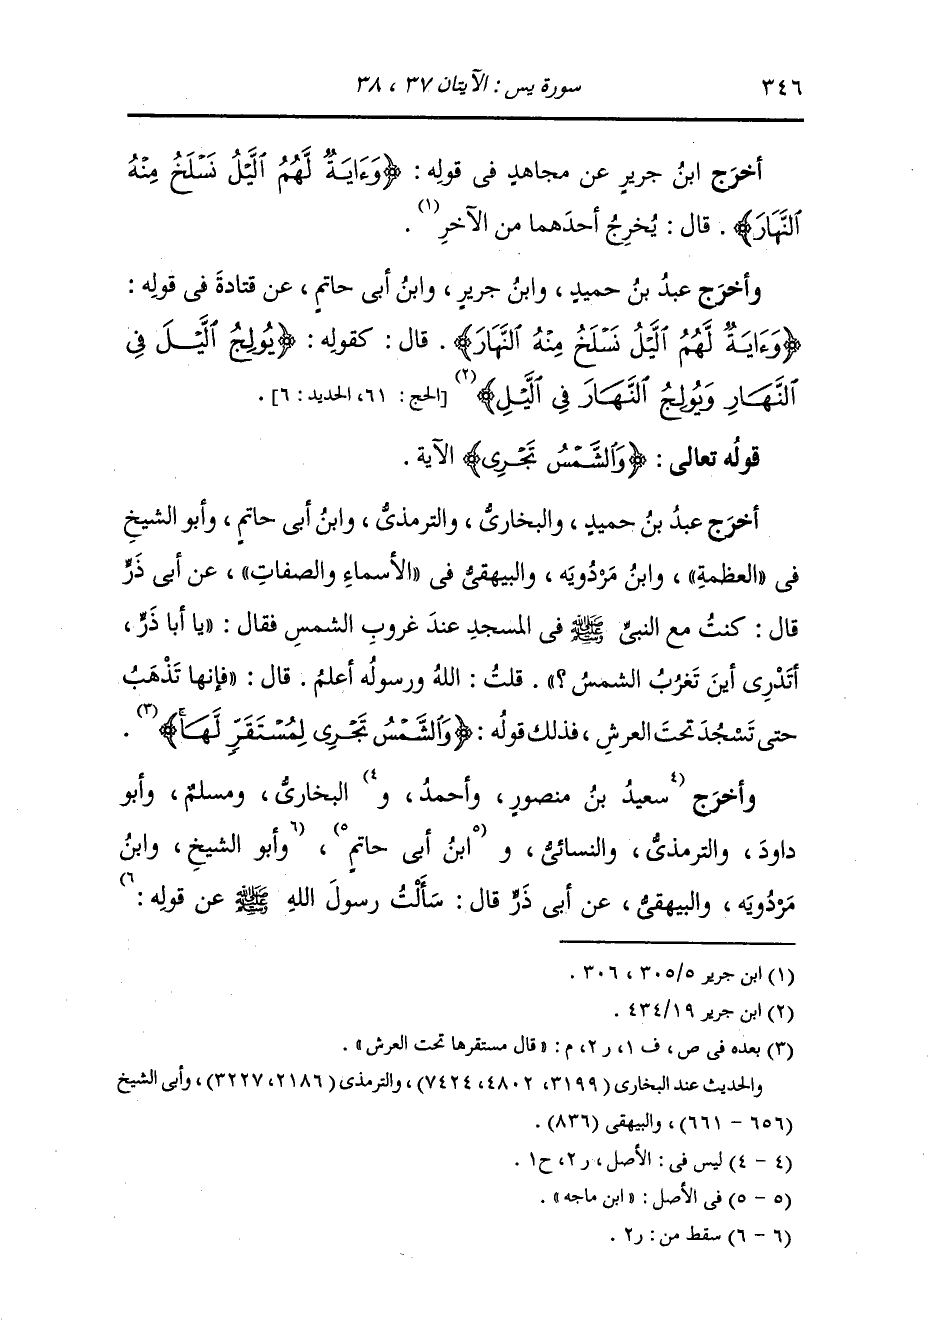 ٣٤٦ سورة يس : الآيتان ٣٧ ، ٣٨
أخرَج ابنُ جريرٍ عن مجاهدٍ فى قولِه : ﴿وَءَايَةٌ لَّهُمُ ٱلَّيْلُ نَسْلَخُ مِنْهُ
ٱلنَّهَارَ﴾ . قال : يُخرِجُ أحدَهما من الآخرِ(١) .
وأخرَج عبدُ بنُ حميدٍ ، وابنُ جريرٍ ، وابنُ أبى حاتمٍ ، عن قتادةَ فى قولِه :
﴿وَءَايَةٌ لَّهُمُ ٱلَّيْلُ نَسْلَخُ مِنْهُ ٱلنَّهَارَ﴾ . قال : كقولِه : ﴿يُولِجُ ٱلَّيْلَ فِى
ٱلنَّهَارِ وَيُولِجُ ٱلنَّهَارَ فِى ٱلَّيْلِ﴾(٢) [الحج : ٦١، الحديد : ٦] .
قولُه تعالى : ﴿وَٱلشَّمْسُ تَجْرِى﴾ الآية .
أخرَج عبدُ بنُ حميدٍ ، والبخارىُّ ، والترمذىُّ ، وابنُ أبى حاتمٍ ، وأبو الشيخِ
فى «العظمةِ» ، وابنُ مَرْدُويَه ، والبيهقىُّ فى «الأسماءِ والصفاتِ» ، عن أبى ذَرٍّ
قال : كنتُ مع النبىِّ ﷺ فى المسجدِ عندَ غروبِ الشمسِ فقال : «يا أبا ذَرٍّ ،
أتَدْرِى أينَ تَغرُبُ الشمسُ ؟» . قلتُ : اللهُ ورسولُه أعلمُ . قال : «فإنها تَذْهَبُ
حتى تَسْجُدَ تحتَ العرشِ ، فذلك قولُه : ﴿وَٱلشَّمْسُ تَجْرِى لِمُسْتَقَرٍّ لَّهَاۚ﴾(٣) .
وأخرَج (٤سعيدُ بنُ منصورٍ ، وأحمدُ ، و٤) البخارىُّ ، ومسلمٌ ، وأبو
داودَ ، والترمذىُّ ، والنسائىُّ ، و (٥ابنُ أبى حاتمٍ٥) ، (٦وأبو الشيخِ ، وابنُ
مَرْدُويَه ، والبيهقىُّ ، عن أبى ذَرٍّ قال : سَأَلْتُ رسولَ اللهِ ﷺ عن قولِه :٦)
(١) ابن جرير ٣٠٥/٥ ، ٣٠٦ .
(٢) ابن جرير ٤٣٤/١٩ .
(٣) بعده فى ص ، ف ١ ، ر ٢ ، م : «قال مستقرها تحت العرش» .
والحديث عند البخارى (٣١٩٩، ٤٨٠٢، ٧٤٢٤) ، والترمذى (٢١٨٦، ٣٢٢٧) ، وأبى الشيخ
(٦٥٦ - ٦٦١) ، والبيهقى (٨٣٦) .
(٤ - ٤) ليس فى : الأصل ، ر ٢ ، ح ١ .
(٥ - ٥) فى الأصل : «ابن ماجه» .
(٦ - ٦) سقط من : ر٢ .